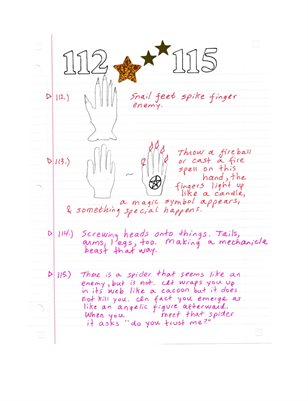 112 115
112.) Snail feet spike finger
enemy.
113.) Throw a fireball
or cast a fire
spell on this
hand, the
fingers light up
like a candle,
a magic symbol appears,
& something special happens.
114.) Screwing heads onto things. Tails,
arms, legs, too. Making a mechanicle
beast that way.
115.) There is a spider that seems like an
enemy, but is not. It wraps you up
in its web like a cacoon but it does
not kill you. In fact you emerge as
like an angelic figure afterward.
When you meet that spider
it asks "do you trust me?"